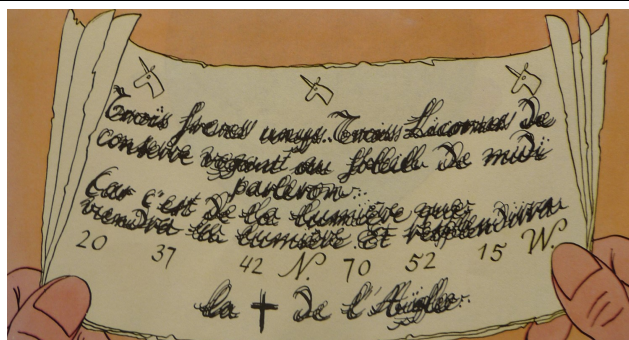 Trois freres unys. Trois Licornes de
conserve vogant au solleil de midi
parleron.
Car c'est de la lumière que
viendra la lumière Et resplendira
20 37 42 N. 70 52 15 W.
la † de l'Aigle.